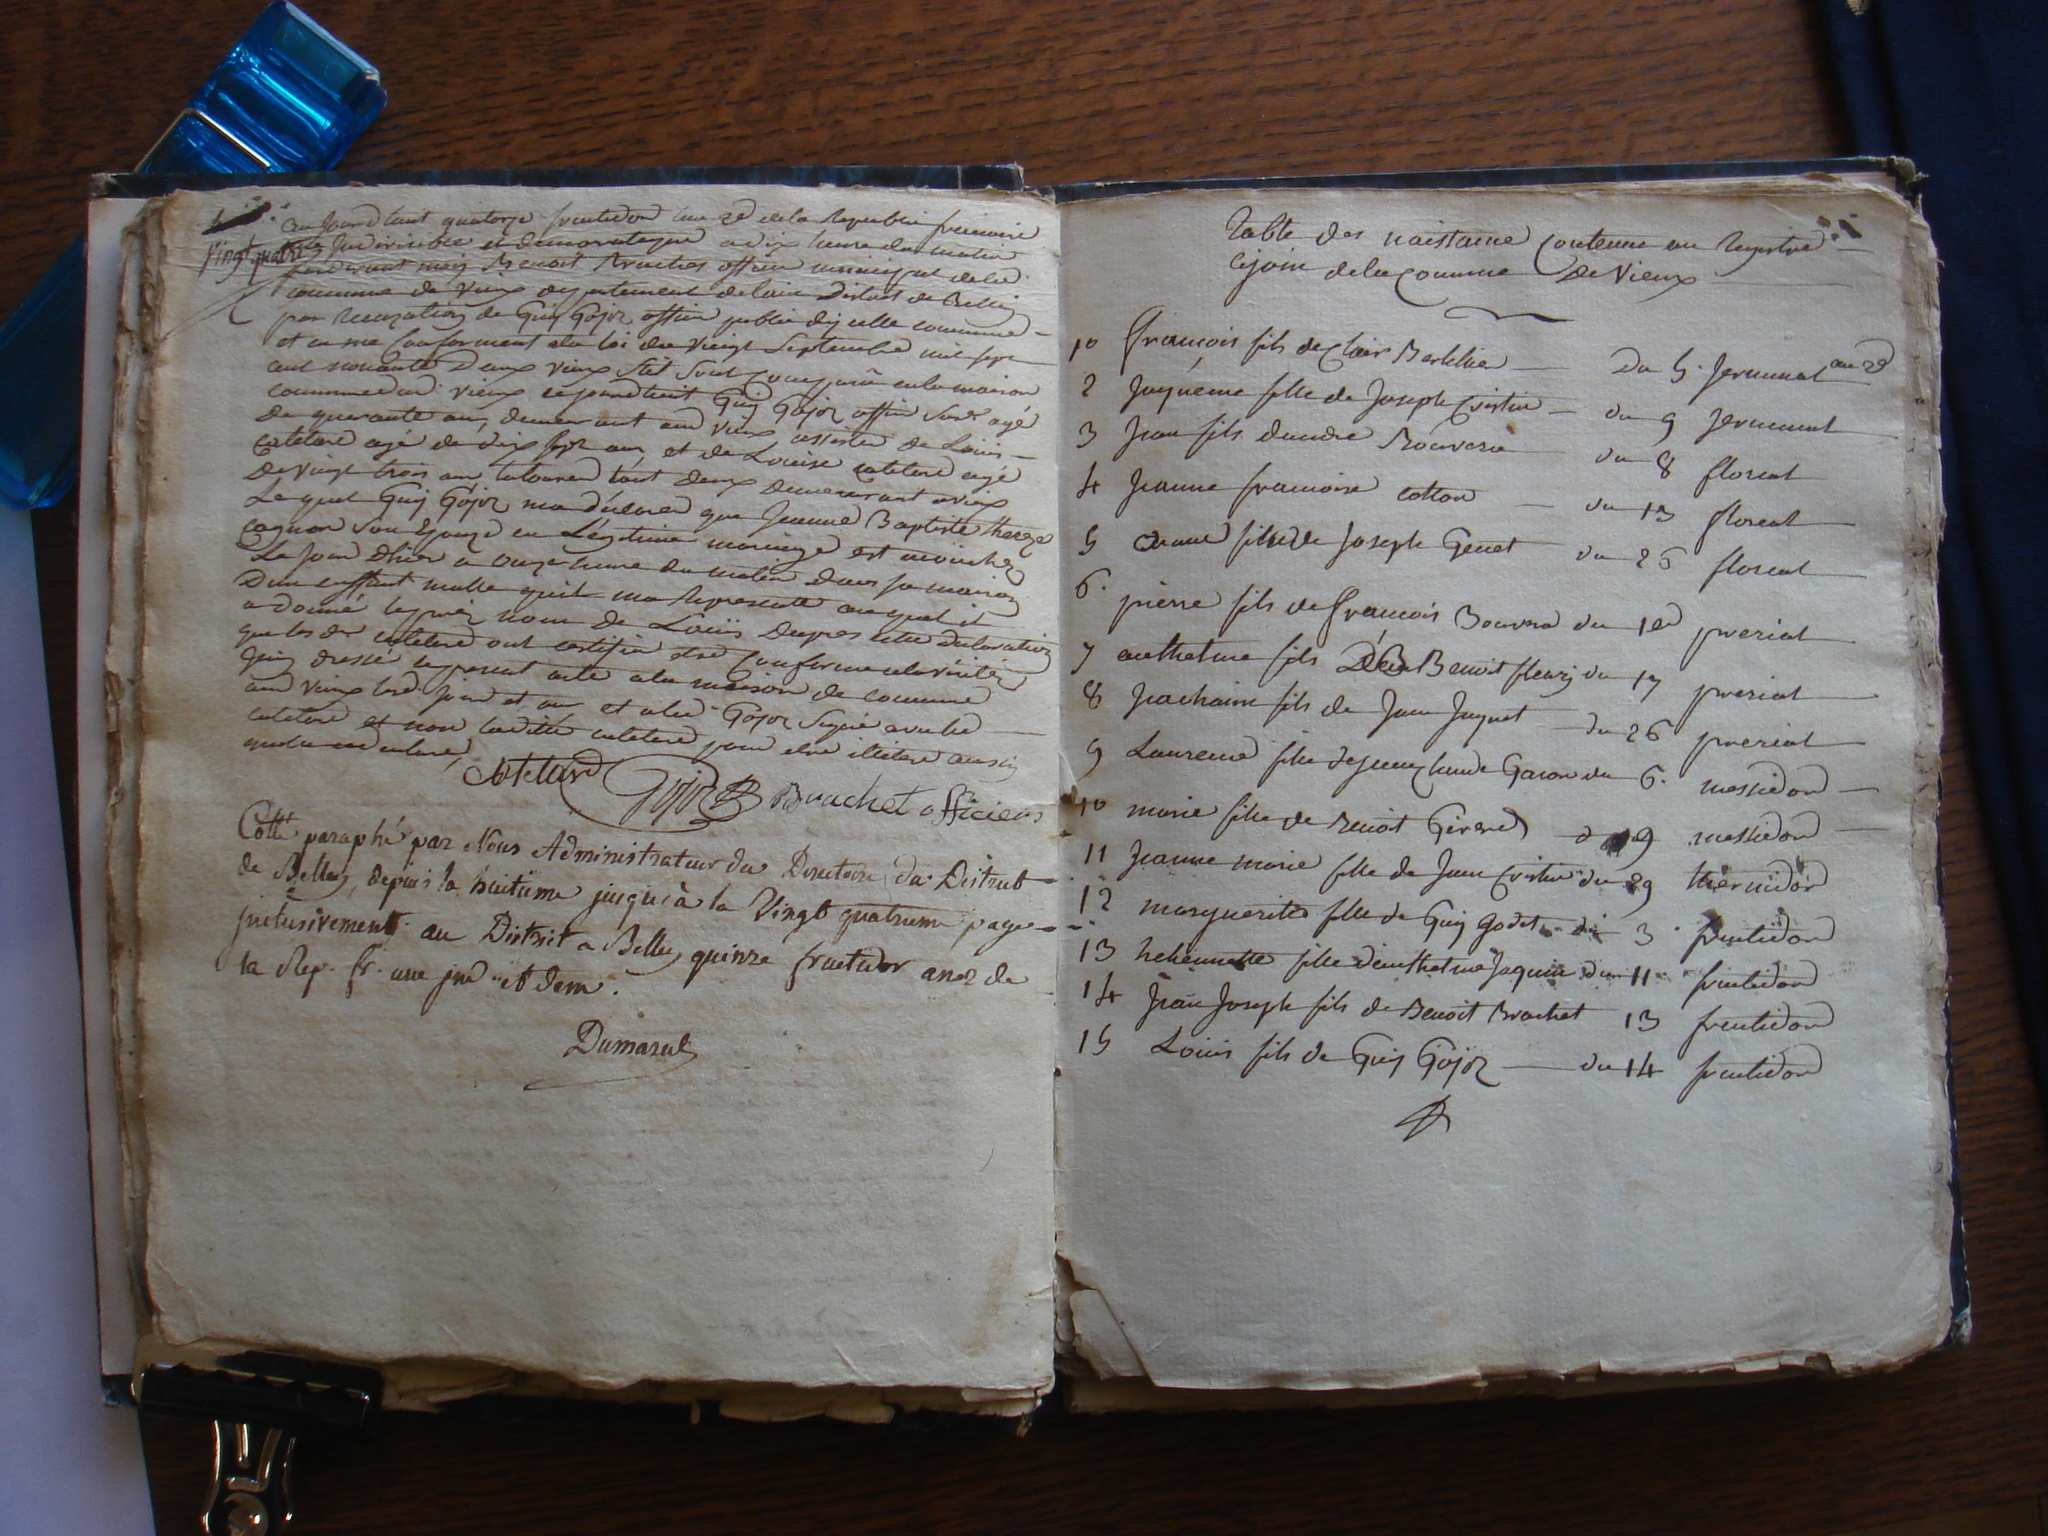 Vingt quatre
Au Jourdhuit quatorze fructidor lan 2d de la Republic francoise
Indivisible et democratique a dix heure du matin
pardevant moy Benoit Brachet officier municipal de la
commune de Vieux departement de lain District de Belley
par recuzation de Guy Gojoz officier public diy celle commune
et en me Conforment a la loi du Vingt Septembre mil sept
cent nonante Deux vieux stil sont comparu en la maison
commune du vieux cependant Guy Gojoz officier agé
de quarante an, demeurant au Vieux assisté de Louis
catelard agé de dix sept an et de Louise catelard agé
De vingt trois an tout deux demeurant a vieux
Lequel Guy Gojoz ma déclaré que Jeanne Baptiste thereze
Cognan Son Epouze en Légitime mariage est acouchez
Le Jour dhier a onze heure du matin dans sa maison
Dun enffant malle quil ma representé auquel il
a donné le prenom de Louis Depres cette declaration
que les dt catelard ont certifié etre Conforme a la vérité
Jay dressé le present acte a la maison de commune
aud vieux les Jour et an et aled Gojoz Signé avec led
catelard et non ladite catelard pour etre illeteré
Catelard Gojoz Brachet officiers
Cotté paraphé par Nous Administrateur du Directoire du District
de Belley, depuis la huitieme jusqu'à la Vingt quatrieme page
inclusivement au District a Belley quinze fructidor an 2 de
la Rep. fr. une ind et dem.
Dumarest
Table des naistance Contenue au Registre
cy join de la Commune De Vieux
10 francois fils de Clair Berlihe Du 5. Jerminal an 2d
2 Jaquéme fille de Joseph Cristin du 9 Jerminal
3 Jean fils dandre Bouvera du 8 floreal
4 Jeanne francoise cotton du 13 floreal
5 fille de Joseph Genet du 26 floreal
6. pierre fils de francois Bouvera du 1er prerial
7 anthelme fils De Benoit fleury du 17 prerial
8 Joachaim fils de Jean Juynet du 26 prerial
9 Laurence fille de Jean Claude Garon du 6. messidor
10 marie fille de Benoit Girerd d 9 messidor
11 Jeanne marie fille de Jean Cristin du 29 thermidor
12 marguerite fille de Guy Godet du 3 fructidor
13 hetiennette fille danthelme Jaquin du 11 fructidor
14 Jean Joseph fils de Benoit Brachet 13 fructidor
15 Louis fils de Guy Gojoz du 14 fructidor